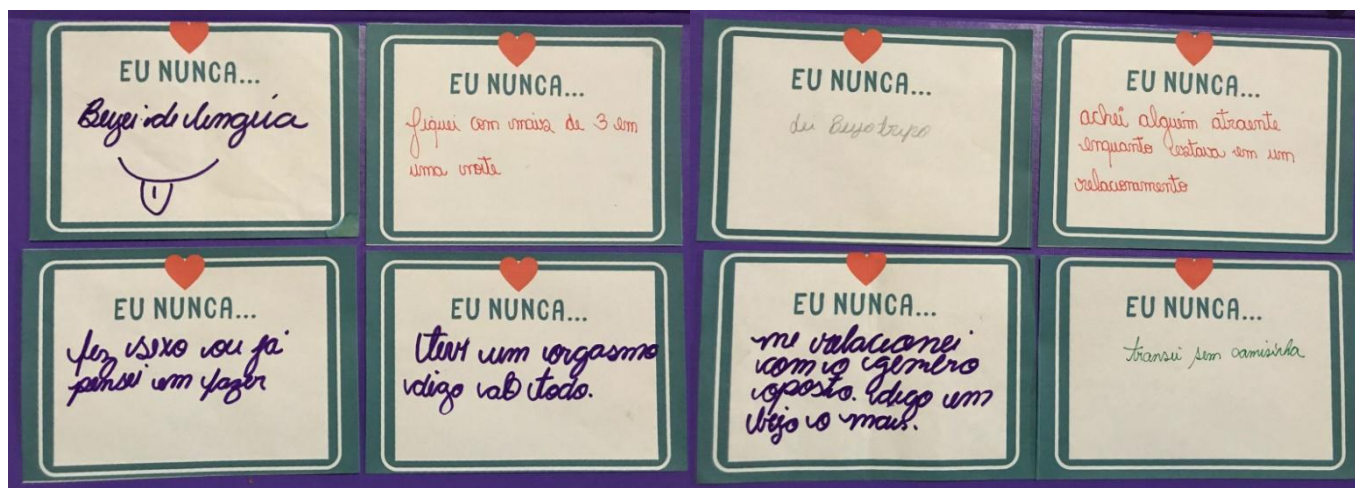 EU NUNCA...
Beijei de lingua
EU NUNCA...
fiquei com mais de 3 em
uma noite
EU NUNCA...
dei Beijo triplo
EU NUNCA...
achei alguém atraente
enquanto estava em um
relacionamento
EU NUNCA...
fez sexo ou já
pensei em fazer
EU NUNCA...
tive um orgasmo
digo ao todo.
EU NUNCA...
me relacionei
com o gênero
oposto. digo um
beijo o mais.
EU NUNCA...
transei sem camisinha